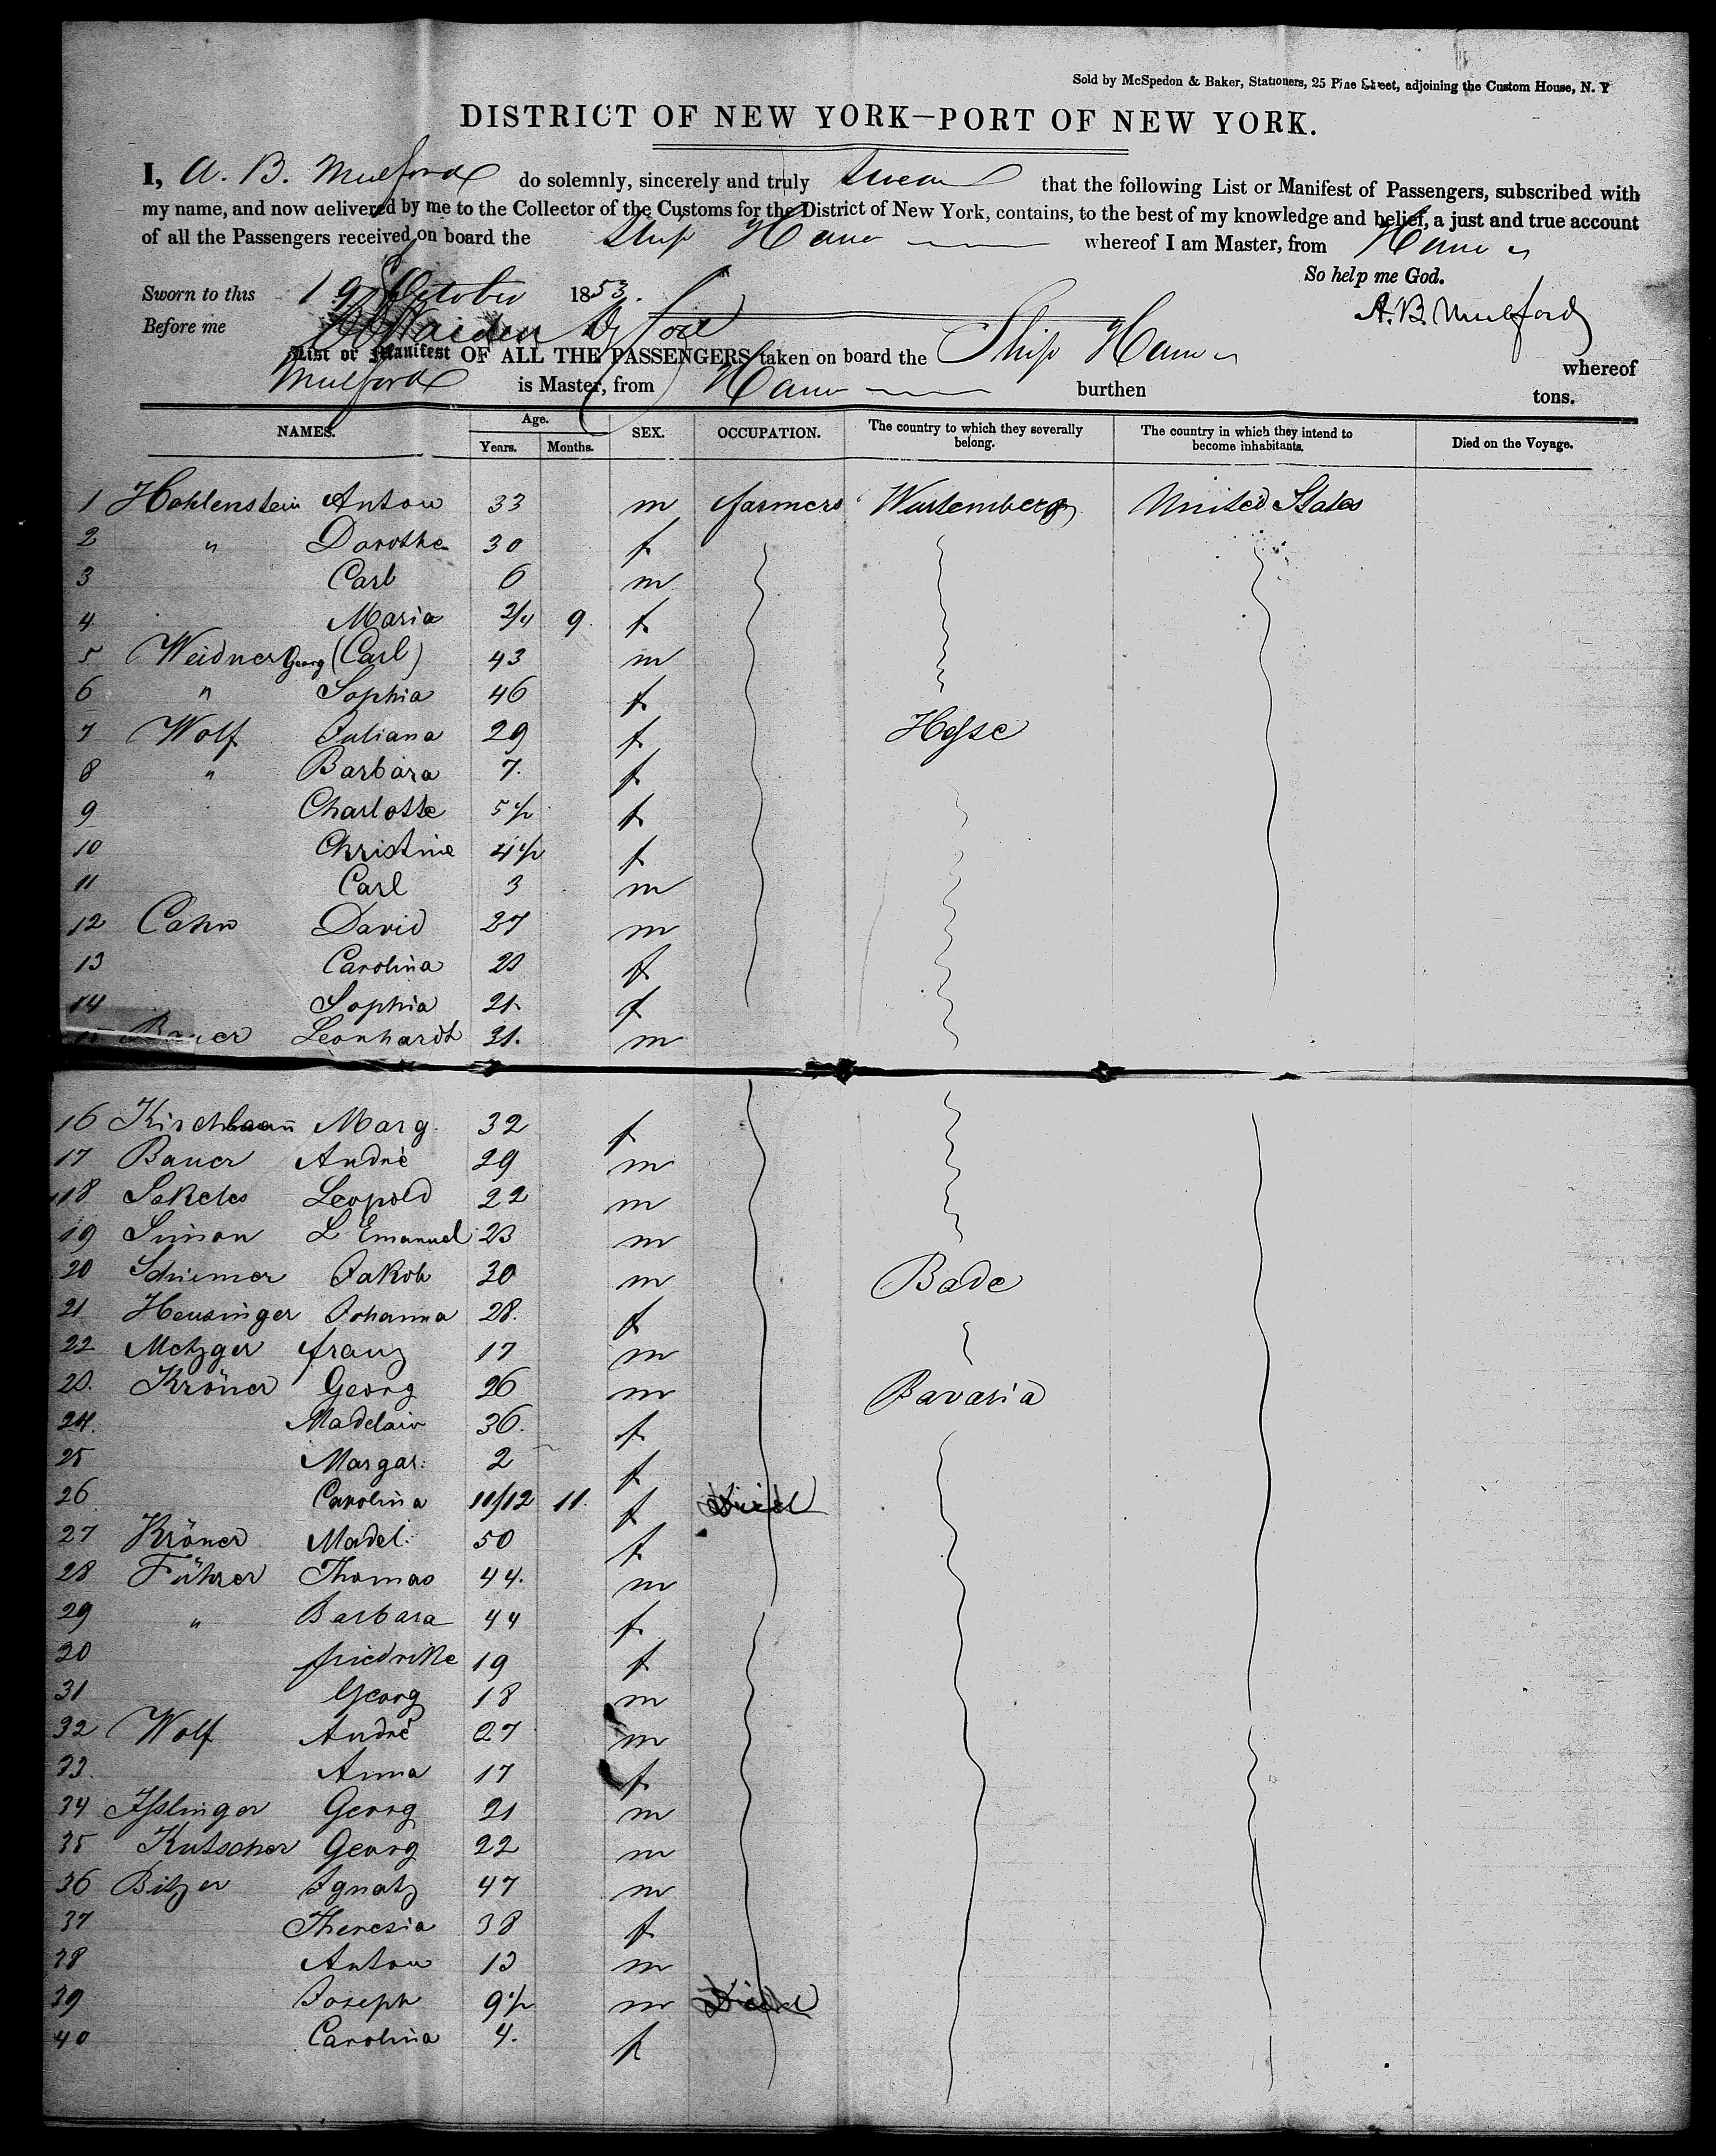 Sold by McSpedon & Baker, Stationers, 25 Pine Street, adjoining the Custom House, N. Y
DISTRICT OF NEW YORK—PORT OF NEW YORK.
I, A. B. Mulford do solemnly, sincerely and truly swear that the following List or Manifest of Passengers, subscribed with
my name, and now delivered by me to the Collector of the Customs for the District of New York, contains, to the best of my knowledge and belief, a just and true account
of all the Passengers received on board the Ship Havre whereof I am Master, from Havre
So help me God.
Sworn to this 19 October 1853.
A. B. Mulford
Before me
List or Manifest OF ALL THE PASSENGERS taken on board the Ship Havre whereof
Mulford is Master, from Havre burthen tons.
NAMES. Age. Years. Months. SEX. OCCUPATION. The country to which they severally belong. The country in which they intend to become inhabitants. Died on the Voyage.
1 Hohlenstein Anton 33 m farmers Wurtemberg United States
2 " Dorothea 30 f
3 Carl 6 m
4 Maria 3/4 9. f
5 Weidner Georg (Carl) 43 m
6 " Sophia 46 f
7 Wolf Juliana 29 f Hesse
8 " Barbara 7. f
9 Charlotte 5 1/2 f
10 Christine 4 1/2 f
11 Carl 3 m
12 Cahn David 27 m
13 Carolina 23 f
14 Sophia 21. f
15 Bauer Leonhardt 31. m
16 Marg. 32 f
17 Bauer André 29 m
18 Leopold 22 m
19 Simon L Emanuel 23 m
20 Schiemer Jakob 30 m Bade
21 Heusinger Johanna 28. f
22 Metzger franz 17 m
23. Kröner Georg 26 m Bavaria
24. Madelain 36. f
25 Margar: 2 f
26 Carolina 11/12 11. f Died
27 Kröner Madel: 50 f
28 Führer Thomas 44. m
29 " Barbara 44 f
30 friedrike 19 f
31 Georg 18 m
32 Wolf André 27 m
33. Anna 17 f
34 Isslinger Georg 21 m
35 Kutscher Georg 22 m
36 Bitzer Ignatz 47 m
37 Theresia 38 f
38 Anton 13 m
39 Joseph 9 1/2 m Died
40 Carolina 4. f